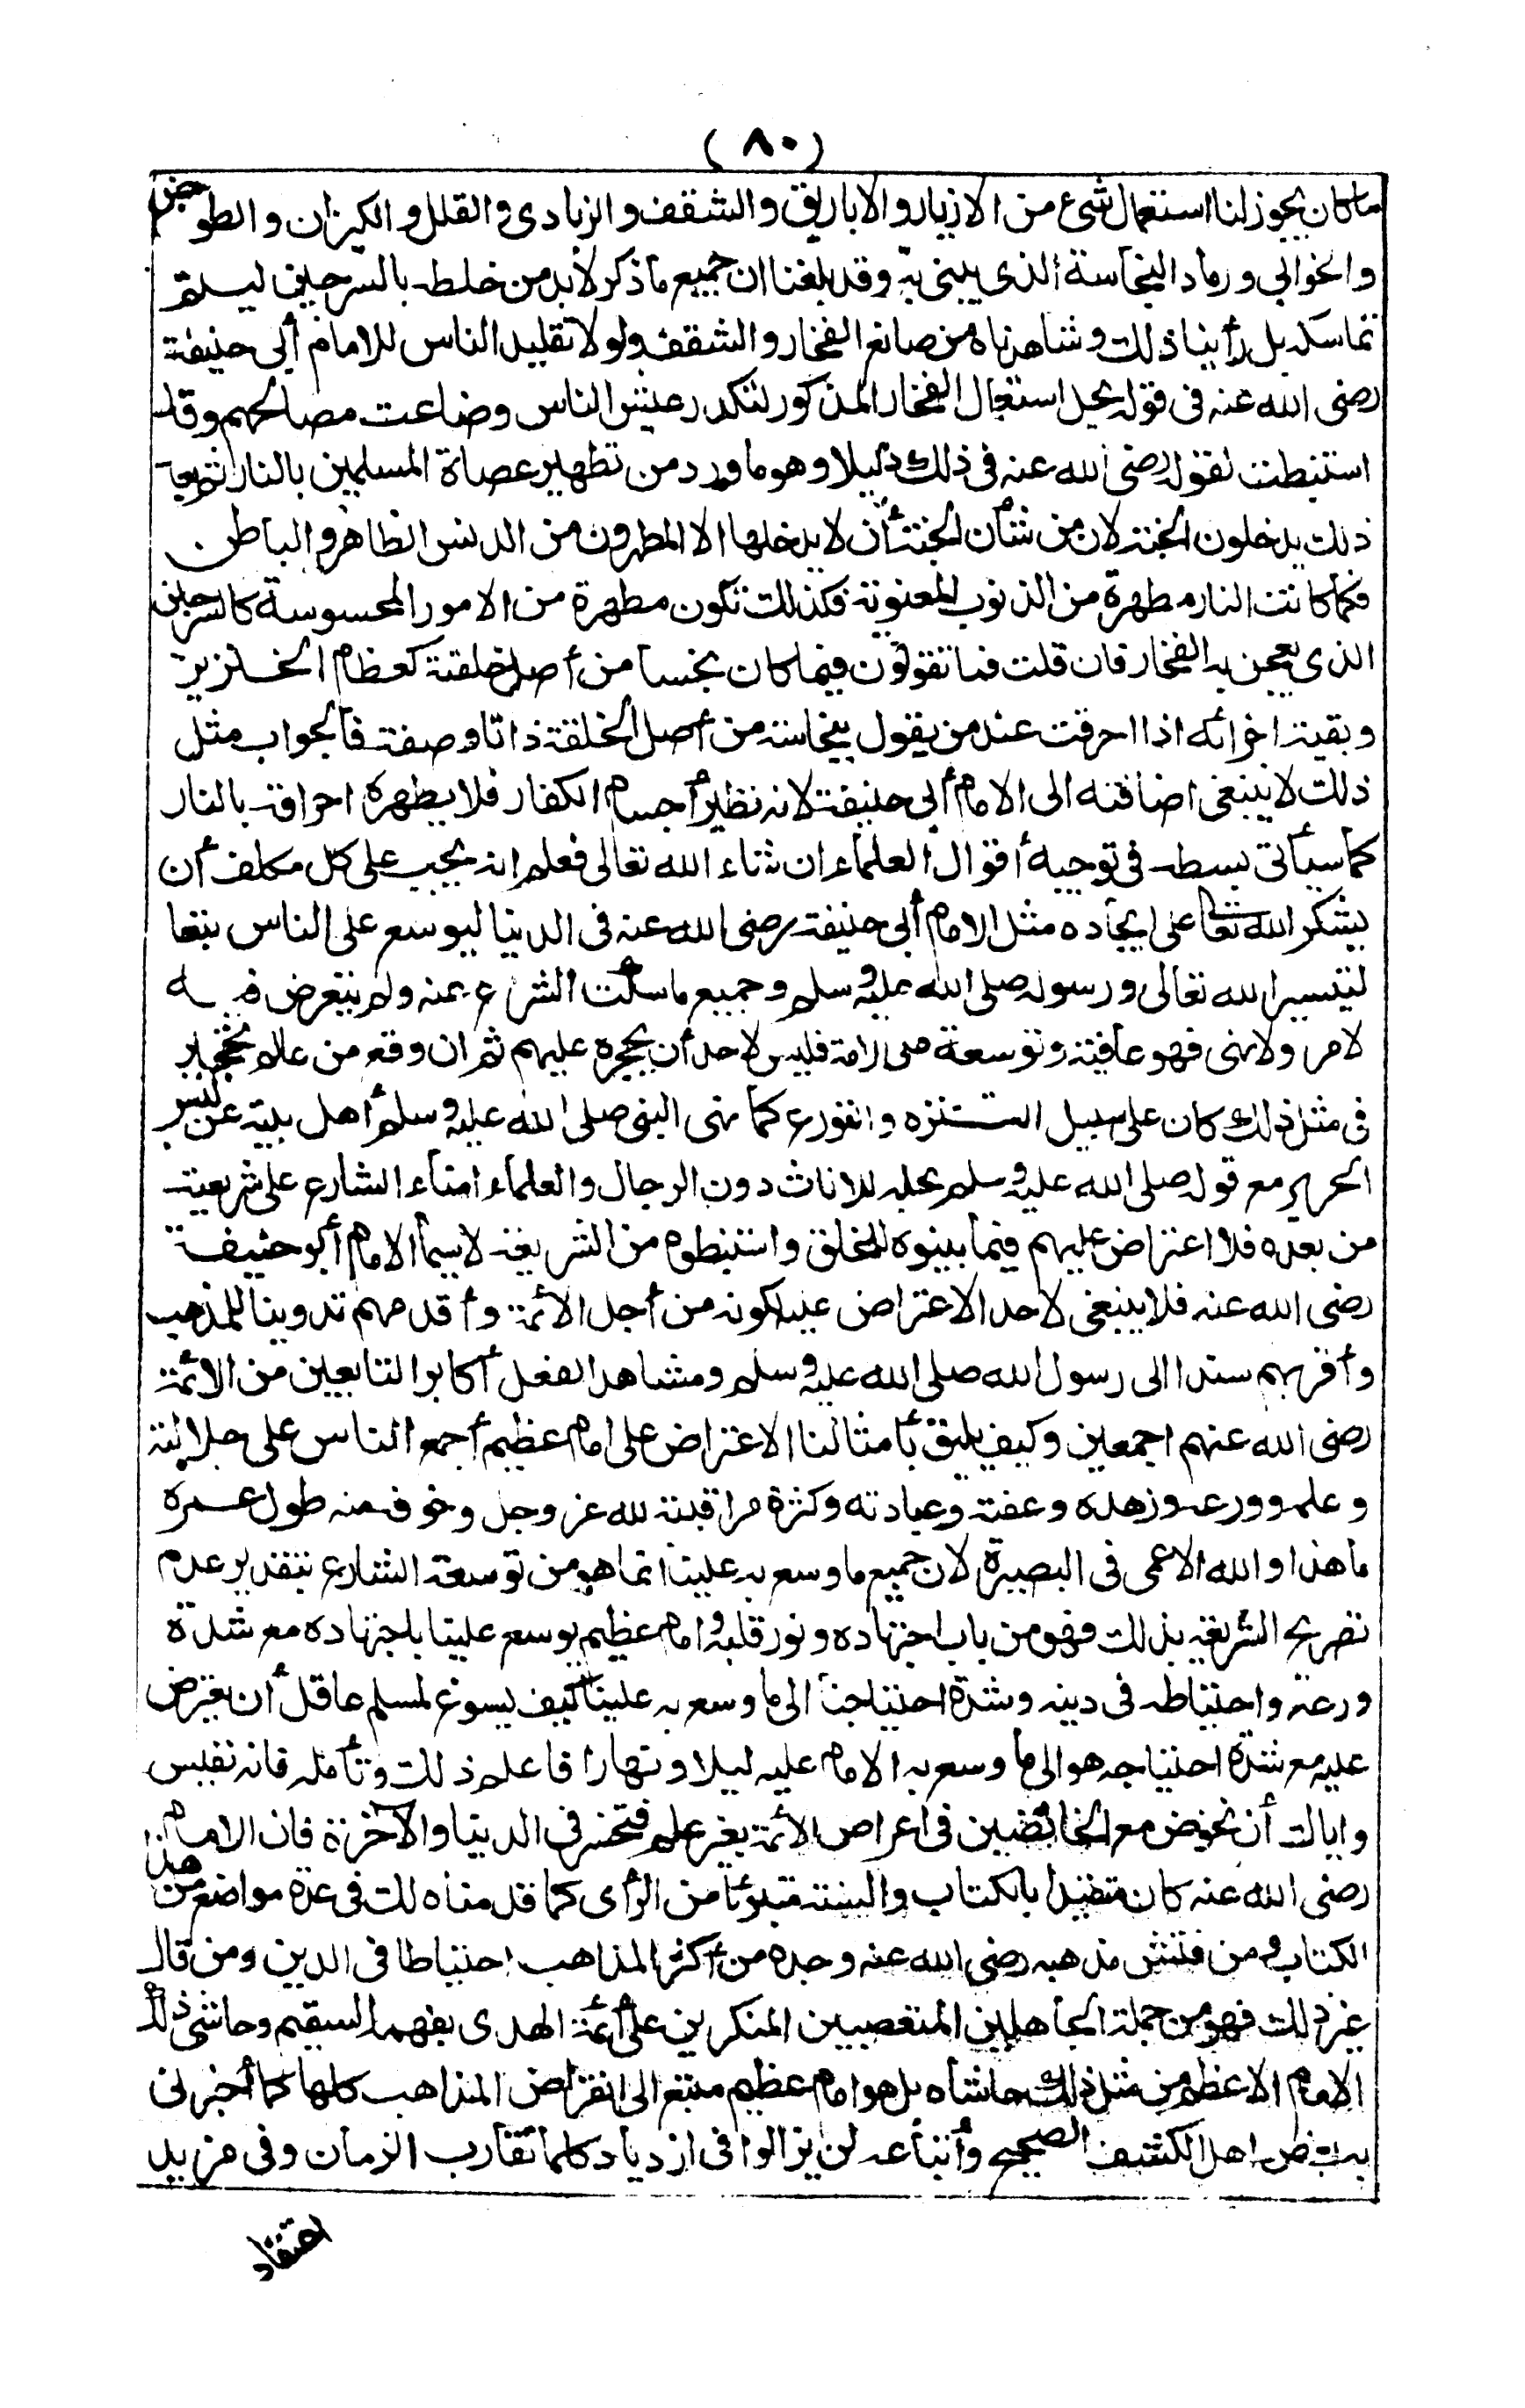 (٨٠)
ما كان يجوز لنا استعمال شئ من الازيار والاباريق والشقف والزبادى والقلل والكيزان والطواجن
والخوابي ورماد النجاسة الذى يبنى به وقد بلغنا ان جميع ما ذكر لا بد من خلطه بالسرجين ليستقر
تماسكه بل رأينا ذلك وشاهدناه من صانع الفخار والشقف ولولا تقليد الناس للامام أبى حنيفة
رضى الله عنه فى قوله بحل استعمال الفخار المذكور لتكدر عيش الناس وضاعت مصالحهم وقد
استنبطت لقوله رضى الله عنه فى ذلك دليلا وهو ما ورد من تطهير عصاة المسلمين بالنار ثم بعد
ذلك يدخلون الجنة لان من شأن الجنة أن لا يدخلها الا المطهرون من الدنس الظاهر والباطن
فكما كانت النار مطهرة من الذنوب المعنوية فكذلك تكون مطهرة من الامور المحسوسة كالسرجين
الذى يعجن به الفخار فان قلت فما تقولون فيما كان نجسا من أصل خلقته كعظام الخنزير
وبقية اجزائه اذا احرقت عند من يقول بنجاسته من أصل الخلقة ذاتا وصفة فالجواب مثل
ذلك لا ينبغى اضافته الى الامام أبى حنيفة لانه نظير أجسام الكفار فلا يطهره احراقه بالنار
كما سيأتى بسطه فى توجيه أقوال العلماء ان شاء الله تعالى فعلم انه يجب على كل مكلف أن
يشكر الله تعالى على ايجاده مثل الامام أبى حنيفة رضى الله عنه فى الدنيا ليوسع على الناس تبعا
لتيسير الله تعالى ورسوله صلى الله عليه وسلم وجميع ما سكت الشرع عنه ولم يتعرض فيه
لامر ولا نهى فهو عافية وتوسعة على الامة فليس لاحد أن يحجره عليهم ثم ان وقع من عالم تحجير
فى مثل ذلك كان على سبيل التنزه والتورع كما نهى النبى صلى الله عليه وسلم أهل بيته عن لبس
الحرير مع قوله صلى الله عليه وسلم بحله للاناث دون الرجال والعلماء امناء الشارع على شريعته
من بعده فلا اعتراض عليهم فيما بينوه للخلق واستنبطوه من الشريعة لا سيما الامام أبو حنيفة
رضى الله عنه فلا ينبغى لاحد الاعتراض عليه لكونه من أجل الائمة وأقدمهم تدوينا للمذهب
وأقربهم سندا الى رسول الله صلى الله عليه وسلم ومشاهدا لفعل أكابر التابعين من الائمة
رضى الله عنهم اجمعين وكيف يليق بأمثالنا الاعتراض على امام عظيم أجمع الناس على جلالته
وعلمه وورعه وزهده وعفته وعبادته وكثرة مراقبته لله عز وجل وخوفه منه طول عمره
ما هذا والله الا عمى فى البصيرة لان جميع ما وسع به علينا انما هو من توسعة الشارع بتقدير عدم
تصريح الشريعة بذلك فهو من باب اجتهاده ونور قلبه وامام عظيم يوسع علينا باجتهاده مع شدة
ورعه واحتياطه فى دينه وشدة احتياجنا الى ما وسع به علينا كيف يسوغ لمسلم عاقل أن يعترض
عليه مع شدة احتياجه هو الى ما وسع به الامام عليه ليلا ونهارا فاعلم ذلك وتأمله فانه نفيس
واياك أن تخوض مع الخائضين فى اعراض الائمة بغير علم فتخسر فى الدنيا والآخرة فان الامام
رضى الله عنه كان متقيدا بالكتاب والسنة متبرئا من الرأى كما قدمناه لك فى عدة مواضع من هذا
الكتاب ومن فتش مذهبه رضى الله عنه وجده من أكثر المذاهب احتياطا فى الدين ومن قال
غير ذلك فهو من جملة الجاهلين المتعصبين المنكرين على أئمة الهدى بفهمه السقيم وحاشى ذلك
الامام الاعظم من مثل ذلك حاشاه بل هو امام عظيم متبع الى انقراض المذاهب كلها كما أخبرنى
به بعض اهل الكشف الصحيح وأتباعه لن يزالوا فى ازدياد كلما تقارب الزمان وفى مزيد
اعتقاد